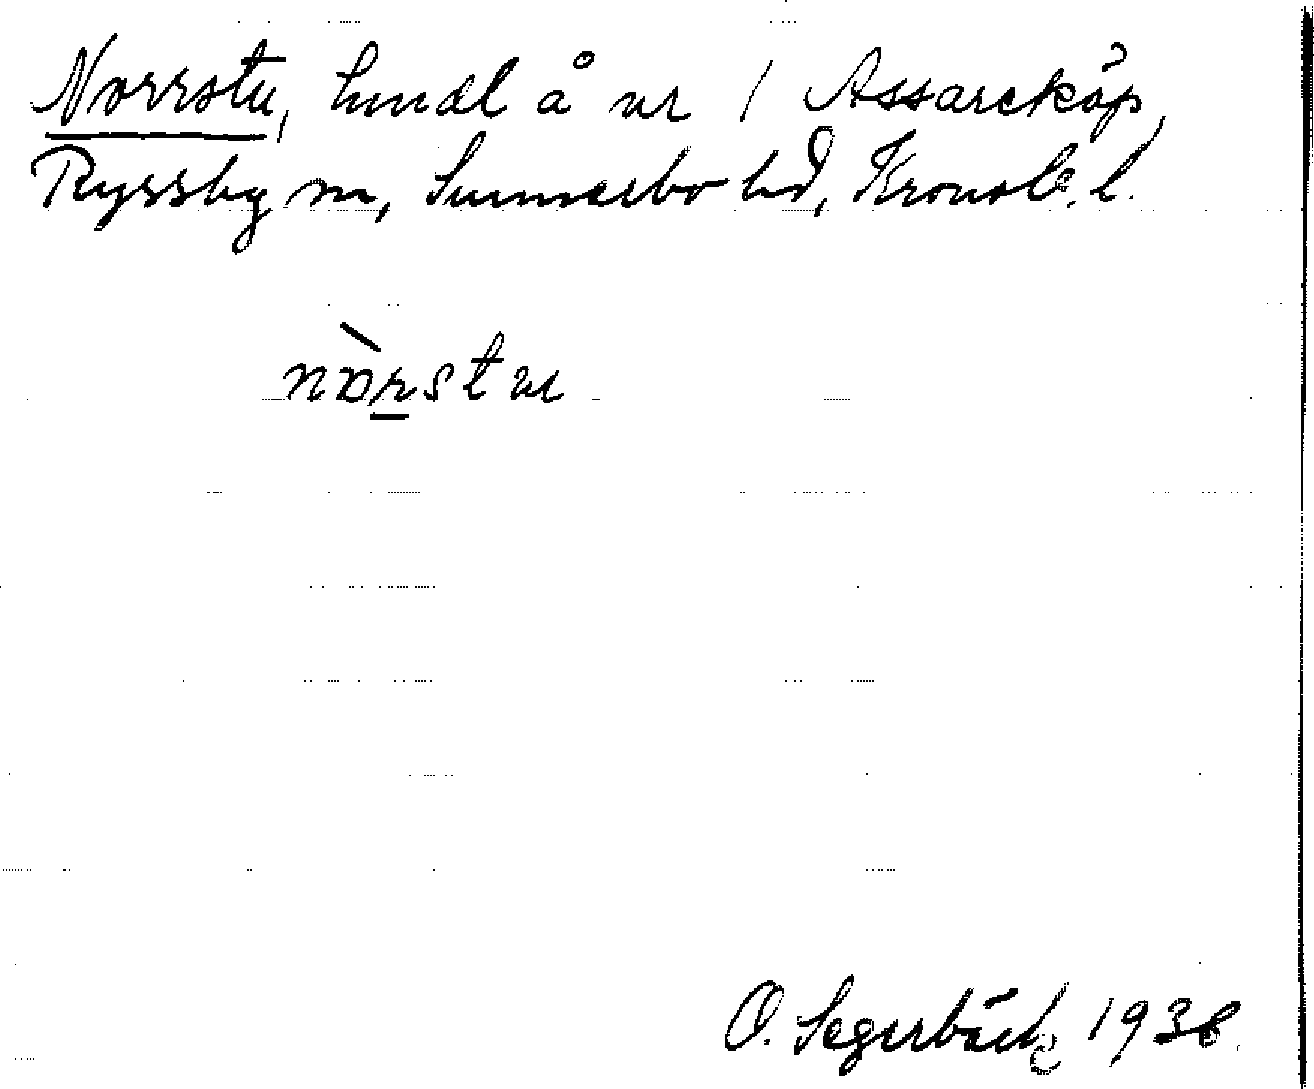 Norrstu, hmdl å nr 1 Assareköp,
Ryssby sn, Sunnerbo hd, Kronob. l.
nòrstu
O. Segerbäck 1938.